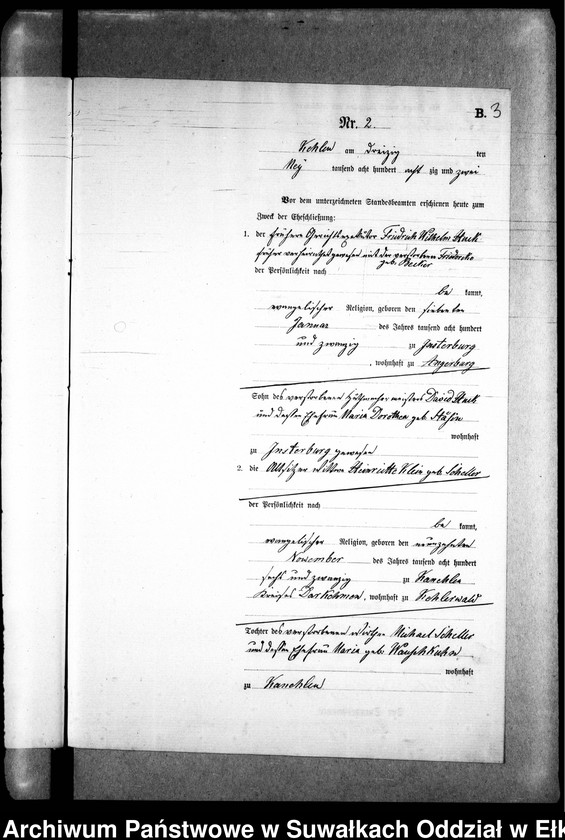 B. 3
Nr. 2.
Kehlen am dreizig ten
May tausend acht hundert acht zig und zwei
Vor dem unterzeichneten Standesbeamten erschienen heute zum
Zweck der Eheschließung:
1. der frühere Gerichtsexekutor Friedrich Wilhelm
früher verheirathet gewesen mit der verstorbenen Friedericke
geb. Becker
der Persönlichkeit nach
be kannt,
evangelischer Religion, geboren den siebenten
Januar des Jahres tausend acht hundert
und zwanzig zu Insterburg
, wohnhaft zu Angerburg
Sohn des verstorbenen David
und dessen Ehefrau Maria Dorothea geb.
wohnhaft
zu Insterburg gewesen
2. die Altsitzer Wittwe Heinriette Klein geb. Scheller
der Persönlichkeit nach
be kannt,
evangelischer Religion, geboren den neunzehnten
November des Jahres tausend acht hundert
sechs und zwanzig zu Kanehlen
Kreises Darkehmen, wohnhaft zu Kehlerwald
Tochter des verstorbenen Wirthen Michael Scheller
und dessen Ehefrau Maria geb.
wohnhaft
zu Kanehlen
Archiwum Państwowe w Suwałkach Oddział w Ełk